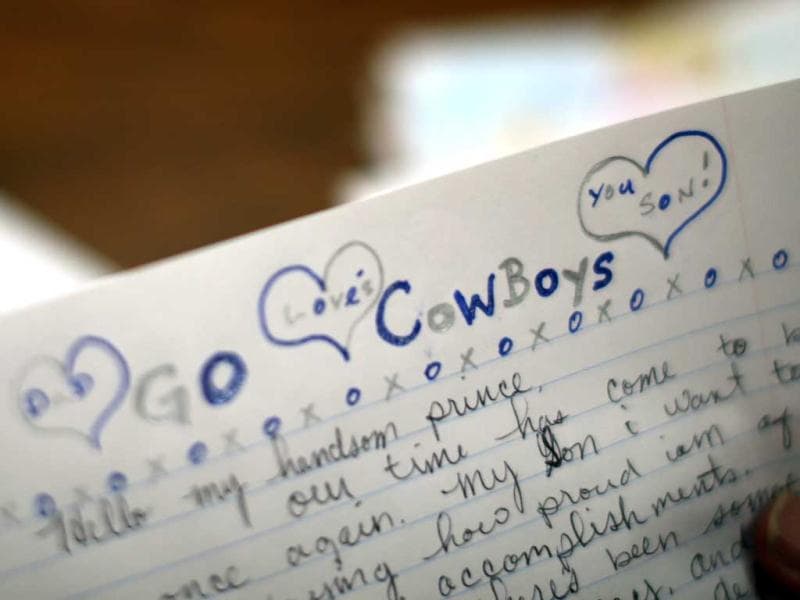 DaD GO Love's COWBOYS You SON!
x o x o x o x o x o x o x o x o x o x o x o
Hello my handsom prince,
our time has come to
once again. My Son i want to
how proud iam of
accomplishments.
been
and